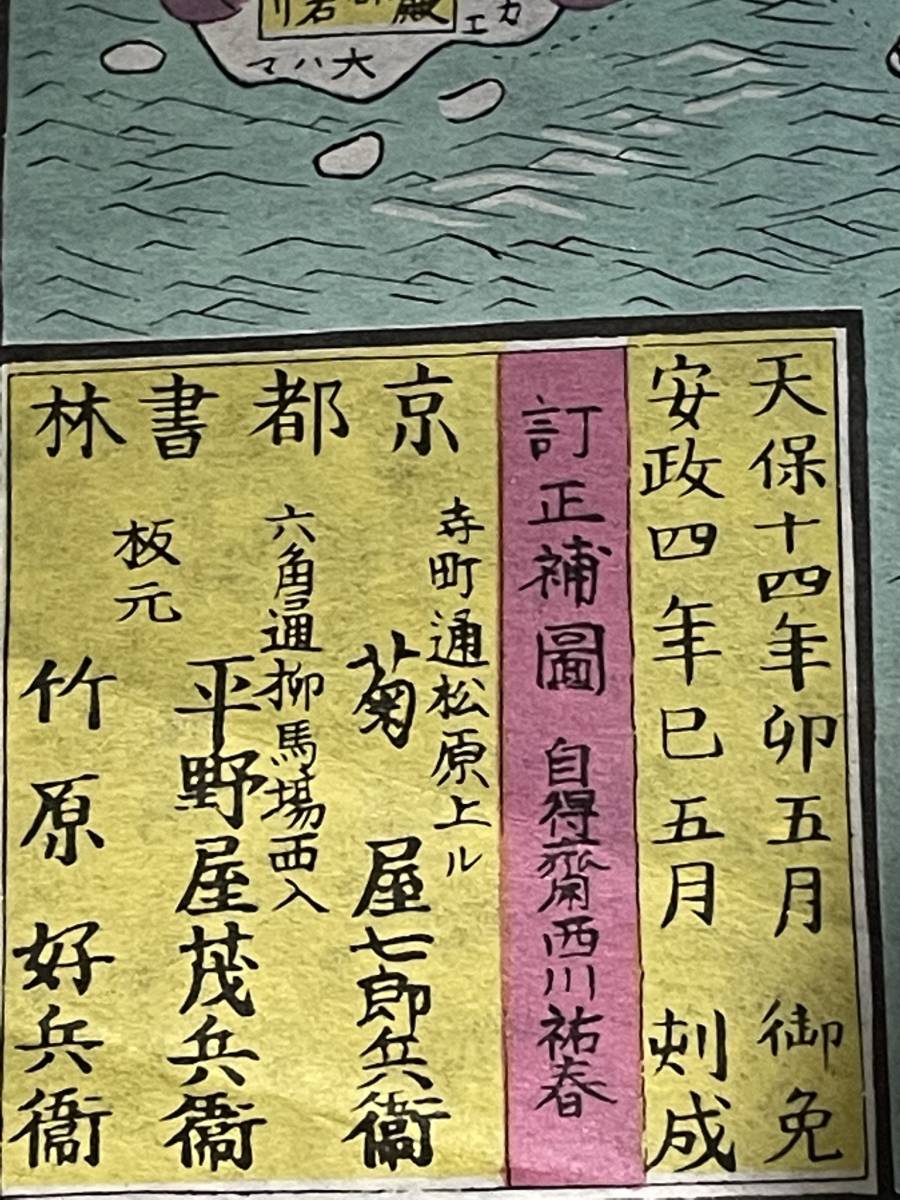 殿
大ハマ
カエ
天保十四年卯五月 御免
安政四年巳五月 刻成
訂正補圖 自得齋西川祐春
京都書林
寺町通松原上ル
菊屋七郎兵衞
六角通柳馬場西入
平野屋茂兵衞
板元
竹原好兵衞